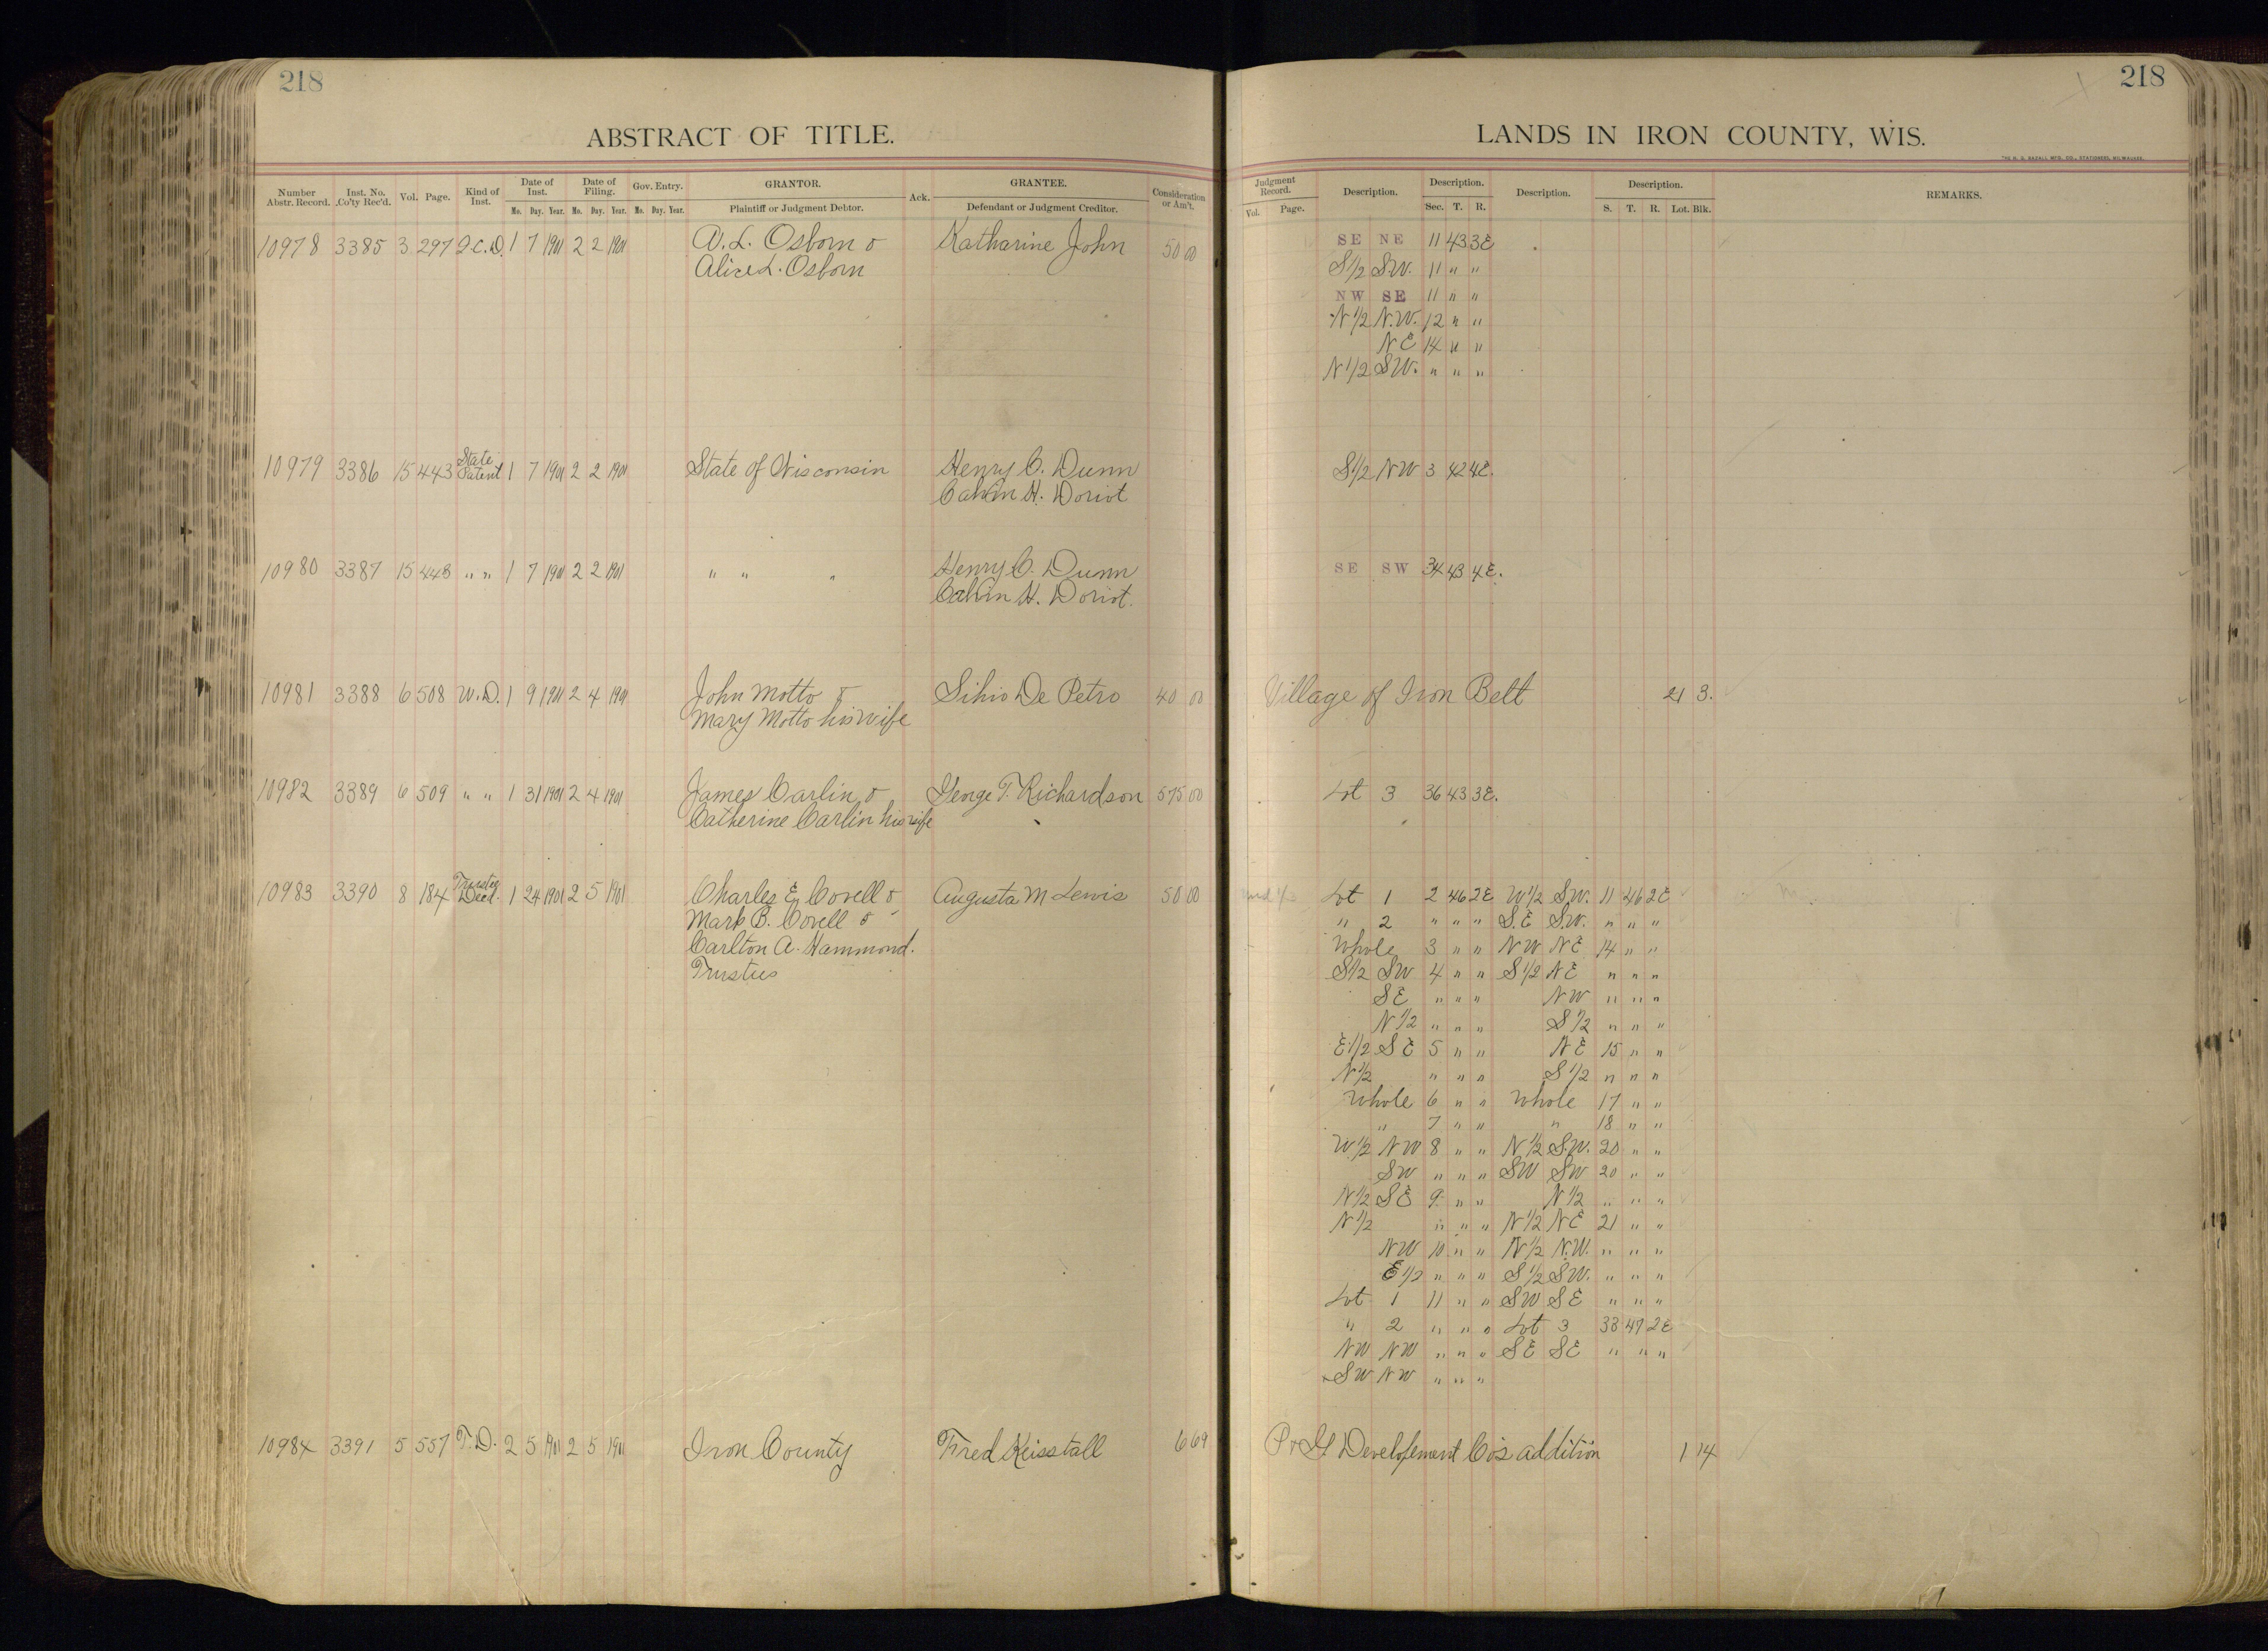 218
ABSTRACT OF TITLE.
Number Abstr. Record. Inst. No. Co'ty Rec'd. Vol. Page. Kind of Inst. Date of Inst. Mo. Day. Year. Date of Filing. Mo. Day. Year. Gov. Entry. Mo. Day. Year. GRANTOR. Plaintiff or Judgment Debtor. Ack. GRANTEE. Defendant or Judgment Creditor. Consideration or Am't.
10978 3385 3 297 Q.C.D. 1 7 1901 2 2 1901 A. L. Osborn & Katharine John 50 00
Alice L. Osborn
10979 3386 15 443 State Patent 1 7 1901 2 2 1901 State of Wisconsin Henry C. Dunn
Calvin H. Doriot
10980 3387 15 443 " " 1 7 1901 2 2 1901 " " " Henry C. Dunn
Calvin H. Doriot.
10981 3388 6 508 W.D. 1 9 1901 2 4 1901 John Motto & De Petro 40 00
Mary Motto his wife
10982 3389 6 509 " " 1 31 1901 2 4 1901 James Carlin & George T. Richardson 575 00
Catherine Carlin his wife
10983 3390 8 184 Trustee Deed. 1 24 1901 2 5 1901 Charles E. Covell & Augusta M Lewis 50 00
Mark B. Covell &
Carlton A. Hammond.
Trustees
10984 3391 5 557 T.D. 2 5 1901 2 5 1901 Iron County Fred 6 69
218
LANDS IN IRON COUNTY, WIS.
THE H. G. RAZALL MFG. CO., STATIONERS, MILWAUKEE.
Judgment Record. Vol. Page. Description. Description. Sec. T. R. Description. Description. S. T. R. Lot. Blk. REMARKS.
SE NE 11 43 3E
S1/2 SW. 11 " "
NW SE 11 " "
N1/2 N.W. 12 " "
NE 14 " "
N1/2 SW. " " "
S1/2 NW 3 42 4E.
SE SW 34 43 4E.
Village of Iron Belt 21 3.
Lot 3 36 43 3E.
Lot 1 2 46 2E W1/2 S.W. 11 46 2E
" 2 " " " S.E S.W. " " "
Whole 3 " " NW NE 14 " "
S1/2 SW 4 " " S1/2 NE " " "
SE " " " NW " " "
N1/2 " " " S1/2 " " "
E1/2 SE 5 " " NE 15 " "
N1/2 " " " S1/2 " " "
Whole 6 " " Whole 17 " "
" 7 " " " 18 " "
W1/2 NW 8 " " N1/2 S.W. 20 " "
SW " " " SW SW 20 " "
N1/2 SE 9 " " N1/2 " " "
N1/2 " " " N1/2 NE 21 " "
NW 10 " " N1/2 N.W. " " "
E1/2 " " " S1/2 SW. " " "
Lot 1 11 " " SW SE " " "
" 2 " " " Lot 3 33 47 2E
NW NW " " " SE SE " " "
SW NW " " "
P & G Developement Co's addition 1 14